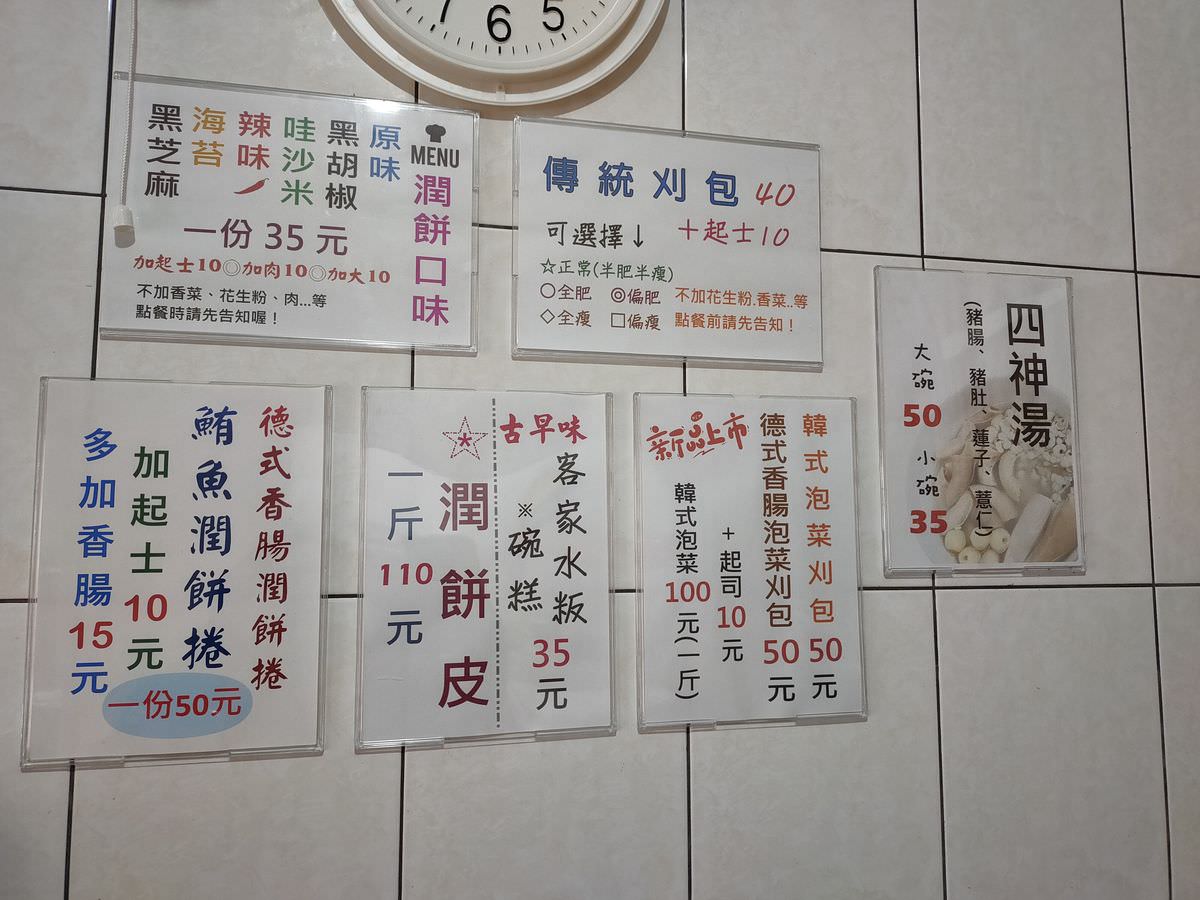 7 6 5
MENU
潤餅口味
原味
黑胡椒
哇沙米
辣味
海苔
黑芝麻
一份 35 元
加起士10◎加肉10◎加大10
不加香菜、花生粉、肉...等
點餐時請先告知喔！
傳統刈包 40
可選擇↓ +起士10
☆正常(半肥半瘦)
○全肥 ◎偏肥 不加花生粉.香菜..等
◇全瘦 □偏瘦 點餐前請先告知！
四神湯
(豬腸、豬肚、蓮子、薏仁)
大碗50 小碗35
德式香腸潤餅捲
鮪魚潤餅捲
加起士10元
多加香腸15元
一份50元
古早味
客家水粄
※碗糕
35元
潤餅皮
一斤110元
新品上市
韓式泡菜刈包50元
德式香腸泡菜刈包50元
+起司10元
韓式泡菜100元(一斤)